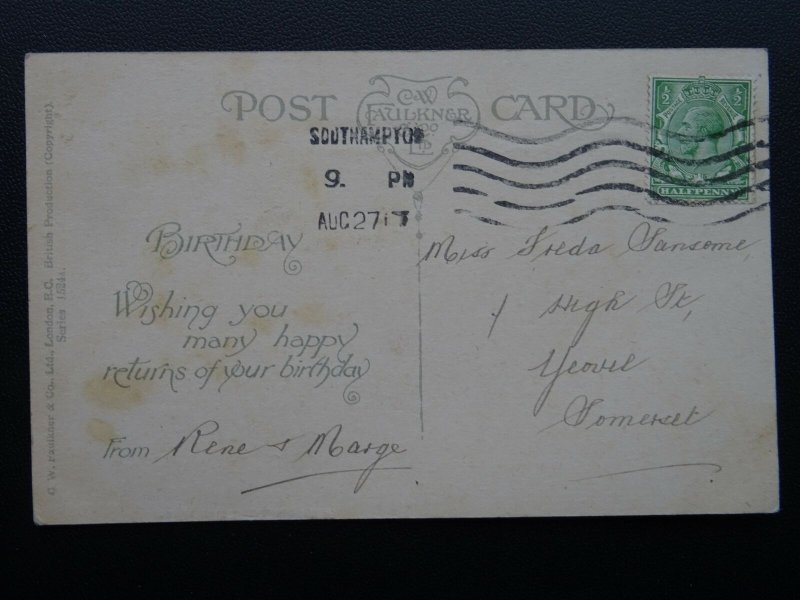 POST CARD
C.W.
FAULKNER
& CO
LTD
½ ½
HALFPENNY
SOUTHAMPTON
9. PM
AUG 27 17
BIRTHDAY
Wishing you
many happy
returns of your birthday
From Rene & Marge
Miss Freda Sansome,
1 High St,
Yeovil
Somerset
C. W. Faulkner & Co., Ltd., London, E.C. British Production (Copyright).
Series 1524